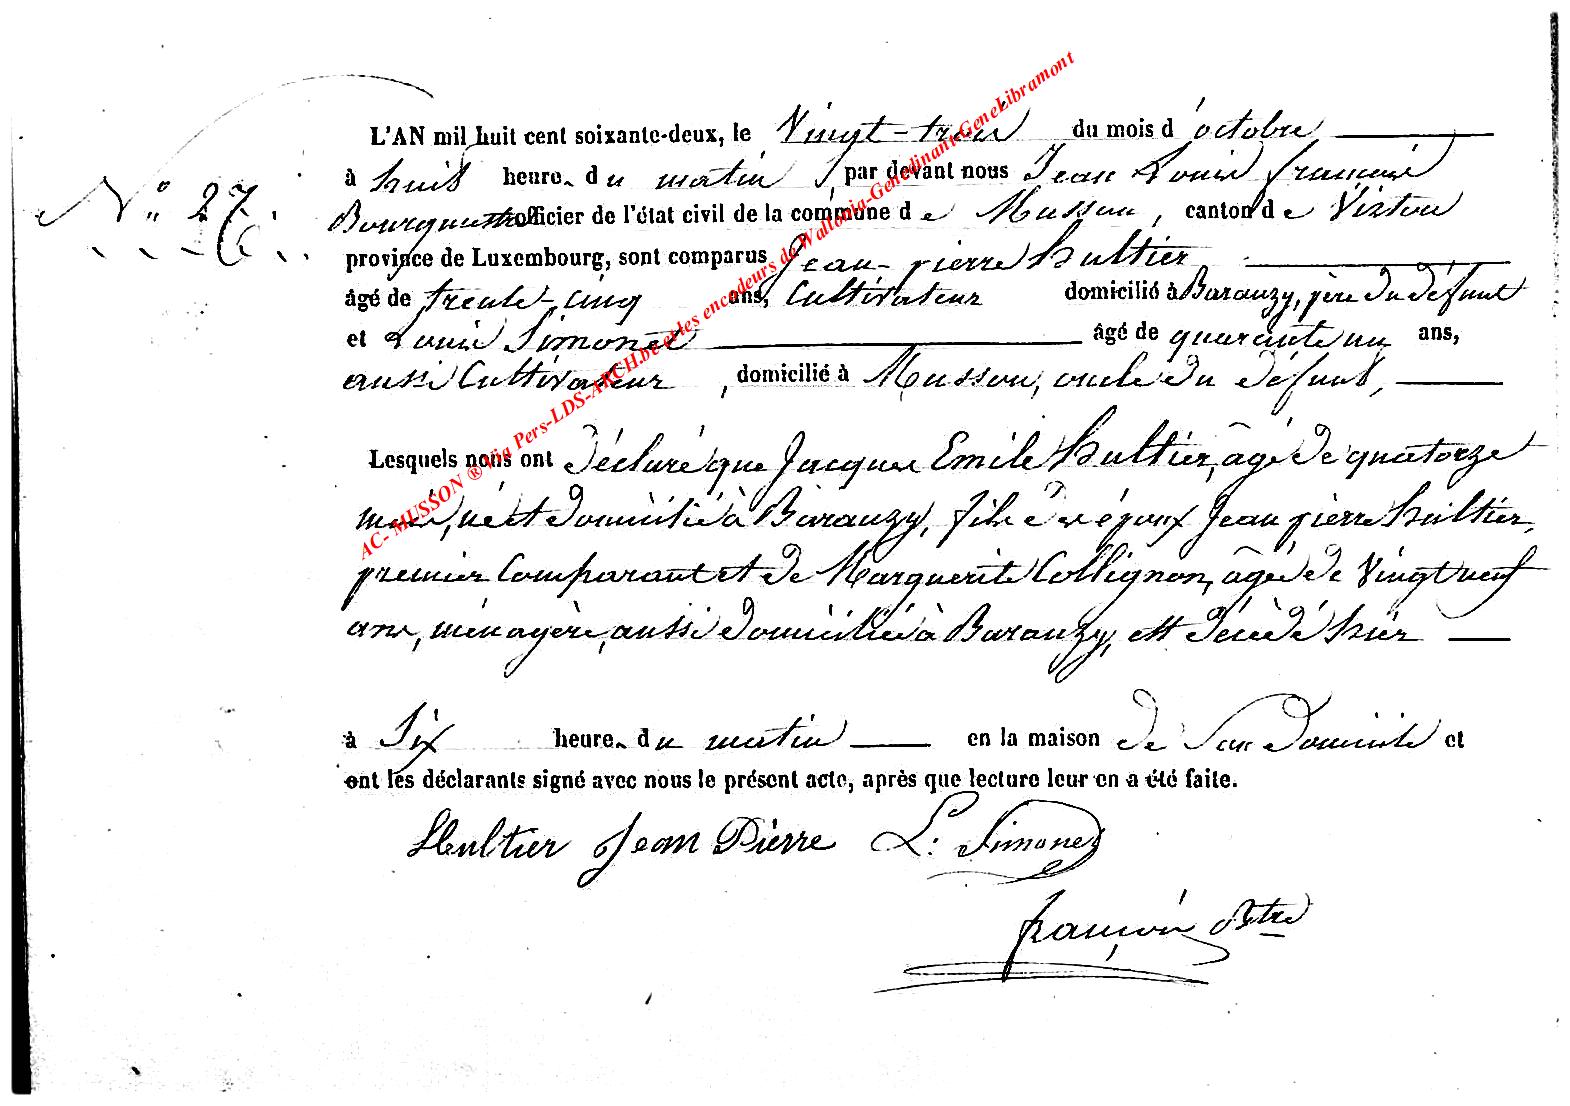 L'AN mil huit cent soixante-deux, le Vingt-trois du mois d'octobre
à huit heure s du matin, par devant nous Jean Louis françois
N° 27.
Bourguemestre officier de l'état civil de la commune de Musson, canton de Virton
province de Luxembourg, sont comparus Jean-pierre Hultier
âgé de trente-cinq ans, Cultivateur domicilié à Baranzy, père du défunt
et Louis Simonet âgé de quarante un ans,
aussi Cultivateur, domicilié à Musson, oncle du défunt,
Lesquels nous ont déclaré que Jacques Emile Hultier, âgé de quatorze
mois, né et domicilié à Baranzy, fils des époux Jean pierre hultier,
premier Comparant et de Marguerite Collignon, âgée de Vingt neuf
ans, ménagère, aussi domiciliée à Baranzy, est décédé hier
à Six heures du matin en la maison de Son Domicile et
ont les déclarants signé avec nous le présent acte, après que lecture leur en a été faite.
Hultier Jean Pierre L: Simonet
françois Btre
AC- MUSSON ® Via Pers-LDS-ARCH.be et les encodeurs de Wallonia-Genedinant-GeneLibramont